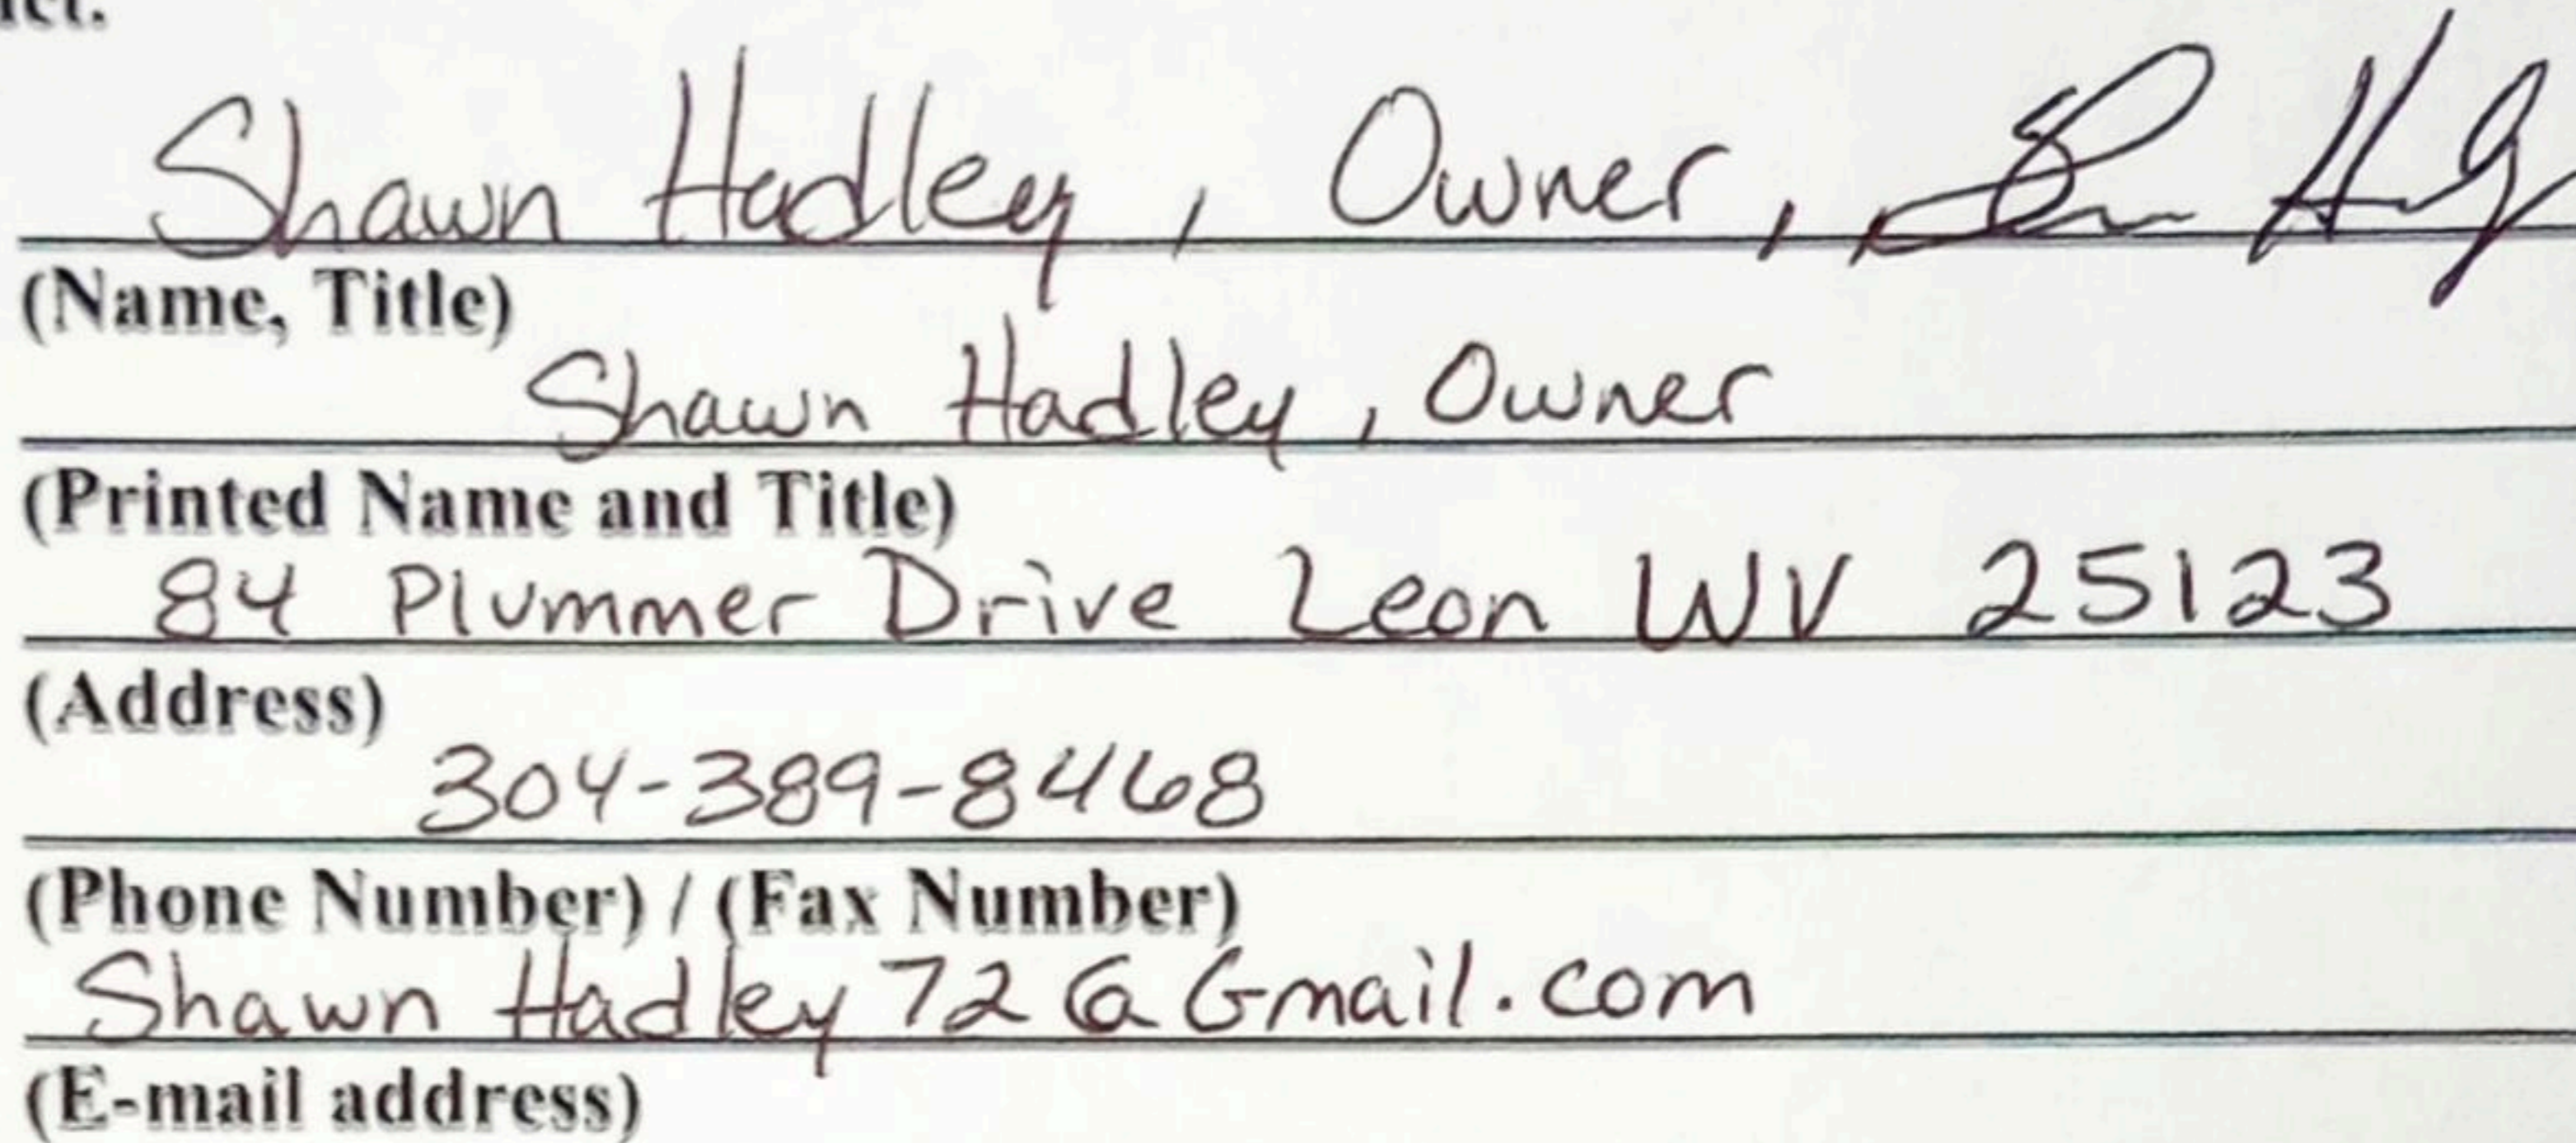 Shawn Hadley, Owner,
(Name, Title)
Shawn Hadley, Owner
(Printed Name and Title)
84 Plummer Drive Leon WV 25123
(Address)
304-389-8468
(Phone Number) / (Fax Number)
Shawn Hadley 72@Gmail.com
(E-mail address)